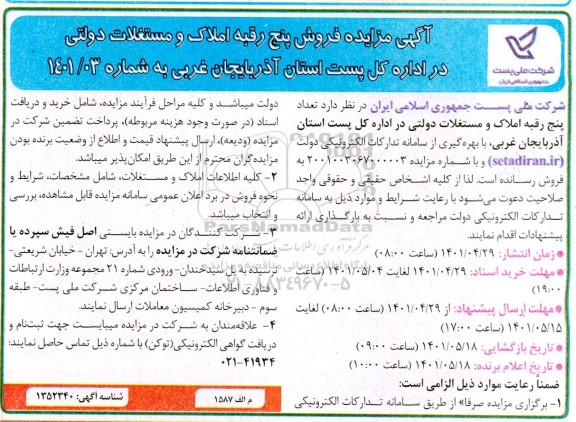 آگهی مزایده فروش پنج رقبه املاک و مستغلات دولتی
در اداره کل پست استان آذربایجان غربی به شماره ۱۴۰۱/۰۳
شرکت ملی پست
جمهوری اسلامی ایران
شرکت ملی پست جمهوری اسلامی ایران در نظر دارد تعداد
پنج رقبه املاک و مستغلات دولتی در اداره کل پست استان
آذربایجان غربی، با بهره‌گیری از سامانه تدارکات الکترونیکی دولت
(setadiran.ir) و با شماره مزایده ۲۰۰۱۰۰۳۰۶۷۰۰۰۰۰۳ به
فروش رسانده است. لذا از کلیه اشخاص حقیقی و حقوقی واجد
صلاحیت دعوت می‌شود با رعایت شرایط و موارد ذیل به سامانه
تدارکات الکترونیکی دولت مراجعه و نسبت به بارگذاری ارائه
پیشنهادات اقدام نمایند.
زمان انتشار: ۱۴۰۱/۰۴/۲۹ (ساعت ۰۸:۰۰)
مهلت خرید اسناد: ۱۴۰۱/۰۴/۲۹ لغایت ۱۴۰۱/۰۵/۰۴ (ساعت
۱۹:۰۰)
مهلت ارسال پیشنهاد: از ۱۴۰۱/۰۴/۲۹ (ساعت ۰۸:۰۰) لغایت
۱۴۰۱/۰۵/۱۵ (ساعت ۱۷:۰۰)
تاریخ بازگشایی: ۱۴۰۱/۰۵/۱۸ (ساعت ۰۹:۰۰)
تاریخ اعلام برنده: ۱۴۰۱/۰۵/۱۸ (ساعت ۱۰:۰۰)
ضمنا رعایت موارد ذیل الزامی است:
۱- برگزاری مزایده صرفا» از طریق سامانه تدارکات الکترونیکی
دولت میباشد و کلیه مراحل فرآیند مزایده، شامل خرید و دریافت
اسناد (در صورت وجود هزینه مربوطه)، پرداخت تضمین شرکت در
مزایده (ودیعه)، ارسال پیشنهاد قیمت و اطلاع از وضعیت برنده بودن
مزایده‌گران محترم از این طریق امکان‌پذیر میباشد.
۲- کلیه اطلاعات املاک و مستغلات، شامل مشخصات، شرایط و
نحوه فروش در برد اعلان عمومی سامانه مزایده قابل مشاهده، بررسی
و انتخاب میباشد.
۳- شرکت کنندگان در مزایده بایستی اصل فیش سپرده یا
ضمانتنامه شرکت در مزایده را به آدرس: تهران - خیابان شریعتی-
نرسیده به پل سیدخندان-ورودی شماره ۲۱ مجموعه وزارت ارتباطات
و فناوری اطلاعات- ساختمان مرکزی شرکت ملی پست- طبقه
سوم - دبیرخانه کمیسیون معاملات ارسال نمایند.
۴- علاقه‌مندان به شرکت در مزایده میبایست جهت ثبت‌نام و
دریافت گواهی الکترونیکی(توکن) با شماره ذیل تماس حاصل نمایند:
۰۲۱-۴۱۹۳۴
م الف ۱۵۸۷
شناسه آگهی: ۱۳۵۲۳۴۰
ParsNamadData
۰۲۱-۸۸۳۴۹۶۷۰-۵